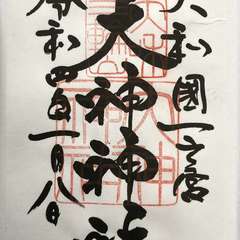 大和國一之宮
大神神社
令和四年一月八日